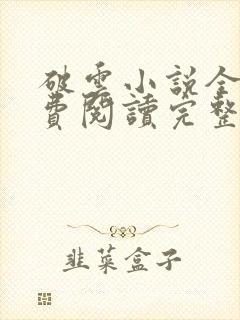 破雲小説全
費閱讀完整
韭菜盒子